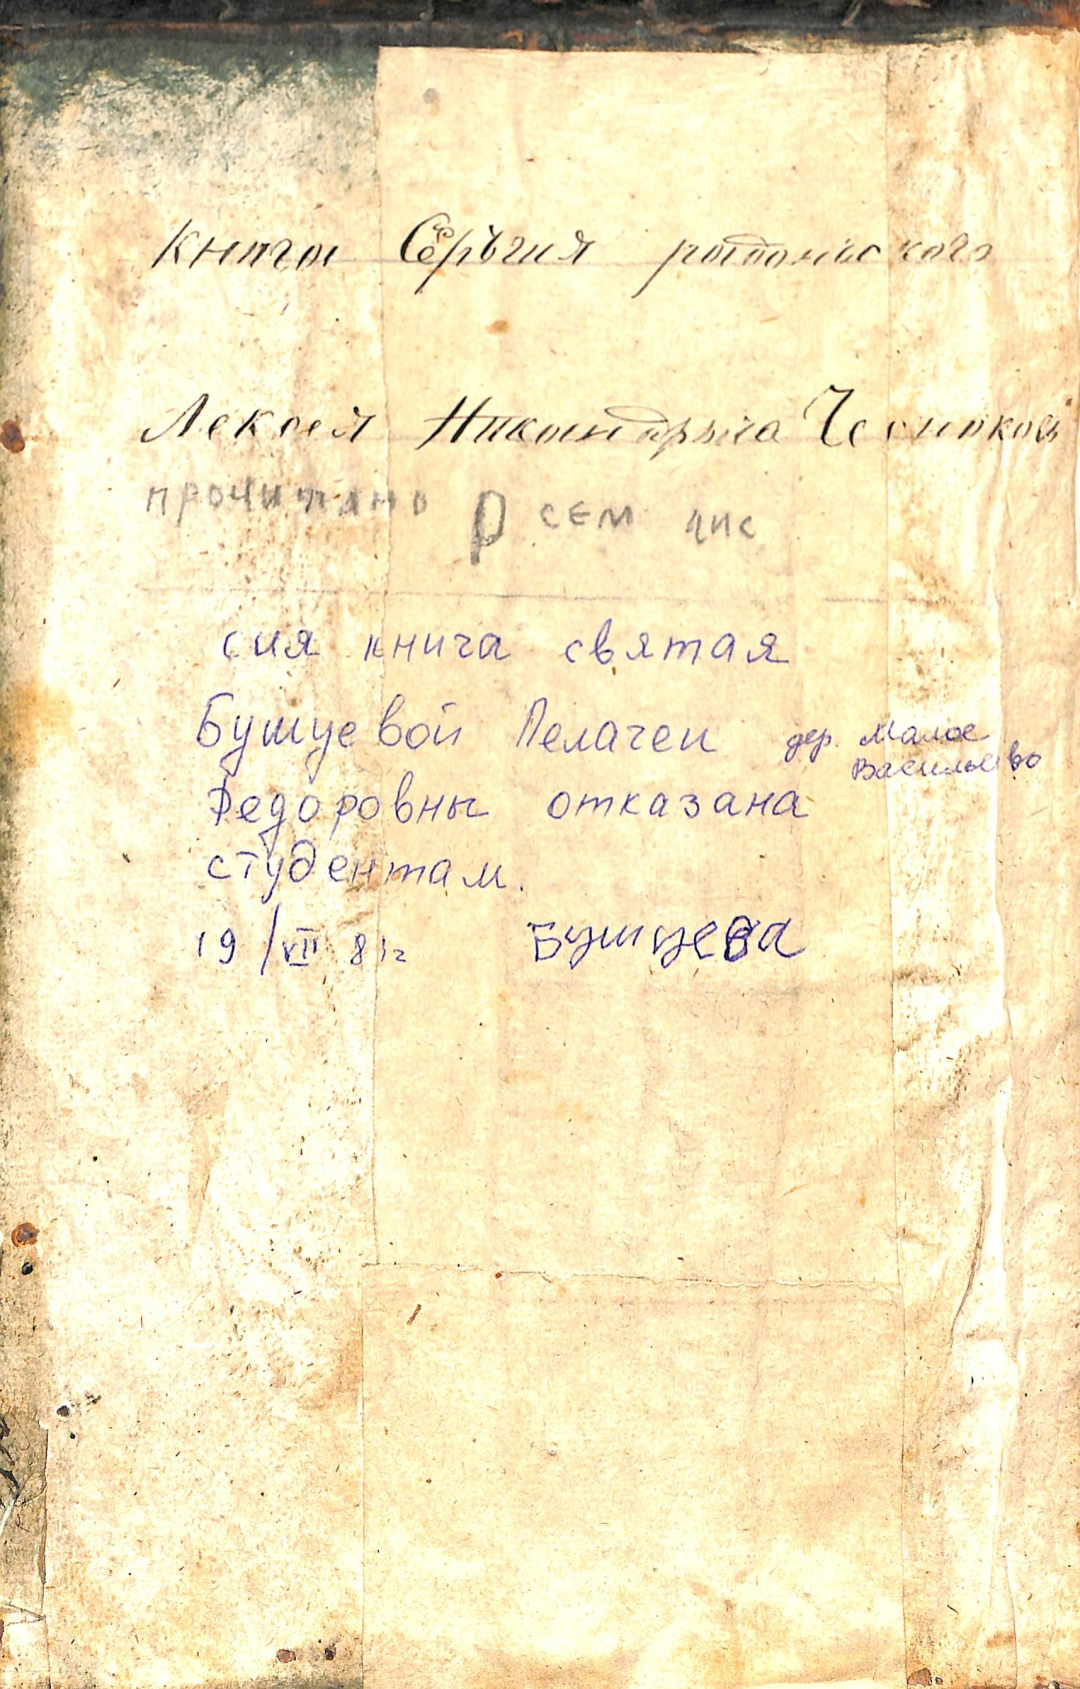 Книга Серъгия радонъского
Лексея Никандрыча Чеснокова
прочитано р сем чис
сия книга святая
Бушуевой Пелагеи дер. Малое
Васильево
Федоровны отказана
студентам.
19/VII 81г Бушуева